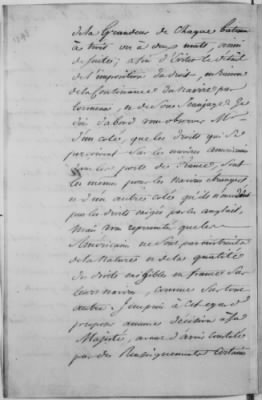 de la Grandeur de Chaque batim
à trois ou à deux mats, ainsi
de suite; afin d'Eviter le détail
de l'imposition du droit, en Raison
de la Continence du navire par
tonneau, et de Son Jaugeage. Je
d'abord observer M.
d'un coté, que les droits qui se
perçoivent Sur les navires américains
dans les ports de France, Sont
les memes pour les navires étrangers
et d'un autre coté qu'ils
par les droits exigés par les anglais,
mais représenté que les
Américains ne Sont pas instruits
de la Nature et de la quotité
des droits exigibles en france Sur
leurs navires, comme Sur tout
autre. Jusqu'à a
proposé aucune décision à Sa
Majesté, avant d'avoir
par des Renseignements Certains